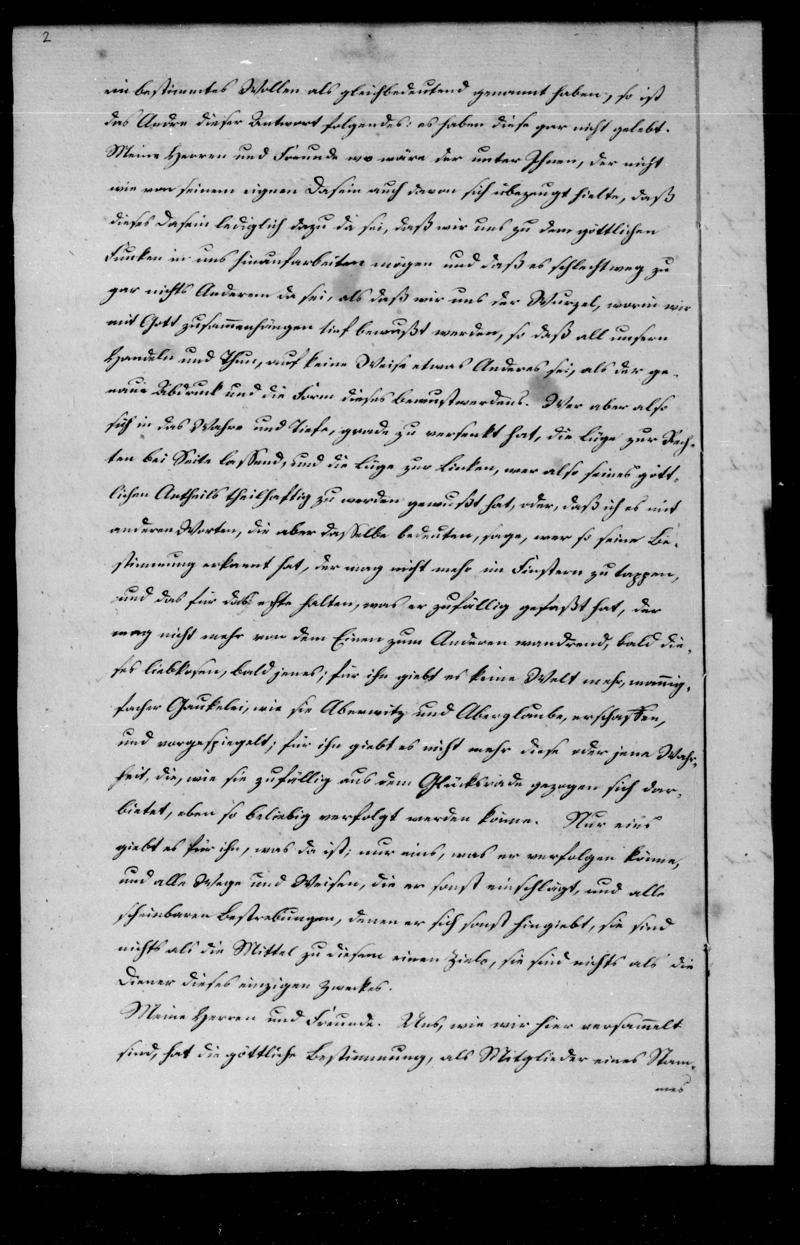 2
ein bestimmtes Wollen als gleichbedeutend genannt haben, so ist
das Andre dieser Antwort folgendes: es haben diese gar nicht gelebt.
Meine Herren und Freunde wo wäre der unter Ihnen, der nicht
wie von seinem eignen Dasein auch davon sich überzeugt hielte, daß
dieses Dasein lediglich dazu da sei, daß wir uns zu dem göttlichen
Funken in uns hinaufarbeiten mögen und daß es schlechtweg zu
gar nichts Anderem da sei, als daß wir uns der Wurzel, worin wir
mit Gott zusammenhängen tief bewußt werden, so daß all unsern
Handeln und Thun, auf keine Weise etwas Anderes sei, als der ge-
naue Abdruck und die Form dieses Bewustwerdens. Wer aber also
sich in das Wahre und Tiefe, grade zu versenkt hat, die Lüge zur Rech-
ten bei Seite lassend, und die Lüge zur Linken, wer also seines gött-
lichen Antheils theilhaftig zu werden gewußt hat, oder, daß ich es mit
anderen Worten, die aber dasselbe bedeuten, sage, wer so seine Be-
stimmung erkannt hat, der mag nicht mehr im Finstern zu tappen,
und das für das echte halten, was er zufällig gefaßt hat, der
mag nicht mehr von dem Einen zum Anderen wandrend, bald die-
ses liebkosen, bald jenes; für ihn giebt es keine Welt mehr, mannig-
facher Gaukelei, wie sie Aberwitz und Aberglaube, erschaffen,
und vorgespiegelt; für ihn giebt es nicht mehr diese oder jene Wahr-
heit, die, wie sie zufällig aus dem Glücksrade gezogen sich dar-
bietet, eben so beliebig verfolgt werden könne. Nur eins
giebt es für ihn, was da ist; nur eins, was er verfolgen könne,
und alle Wege und Weisen, die er sonst einschlägt, und alle
scheinbaren Bestrebungen, denen er sich sonst hingiebt, sie sind
nichts als die Mittel zu diesem einen Ziele, sie sind nichts als die
Diener dieses einzigen Zweckes.
Meine Herren und Freunde. Uns, wie wir hier versammelt
sind, hat die göttliche Bestimmung, als Mitglieder eines Stam-
mes